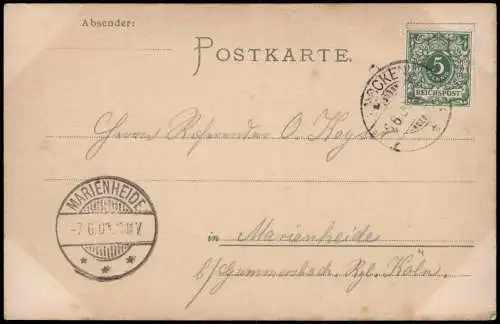 Absender:
POSTKARTE.
5
REICHSPOST
Herrn Referendar O. Kayser
MARIENHEIDE
-7.6.
in Marienheide
b/Gummersbach. Rgb. Köln.